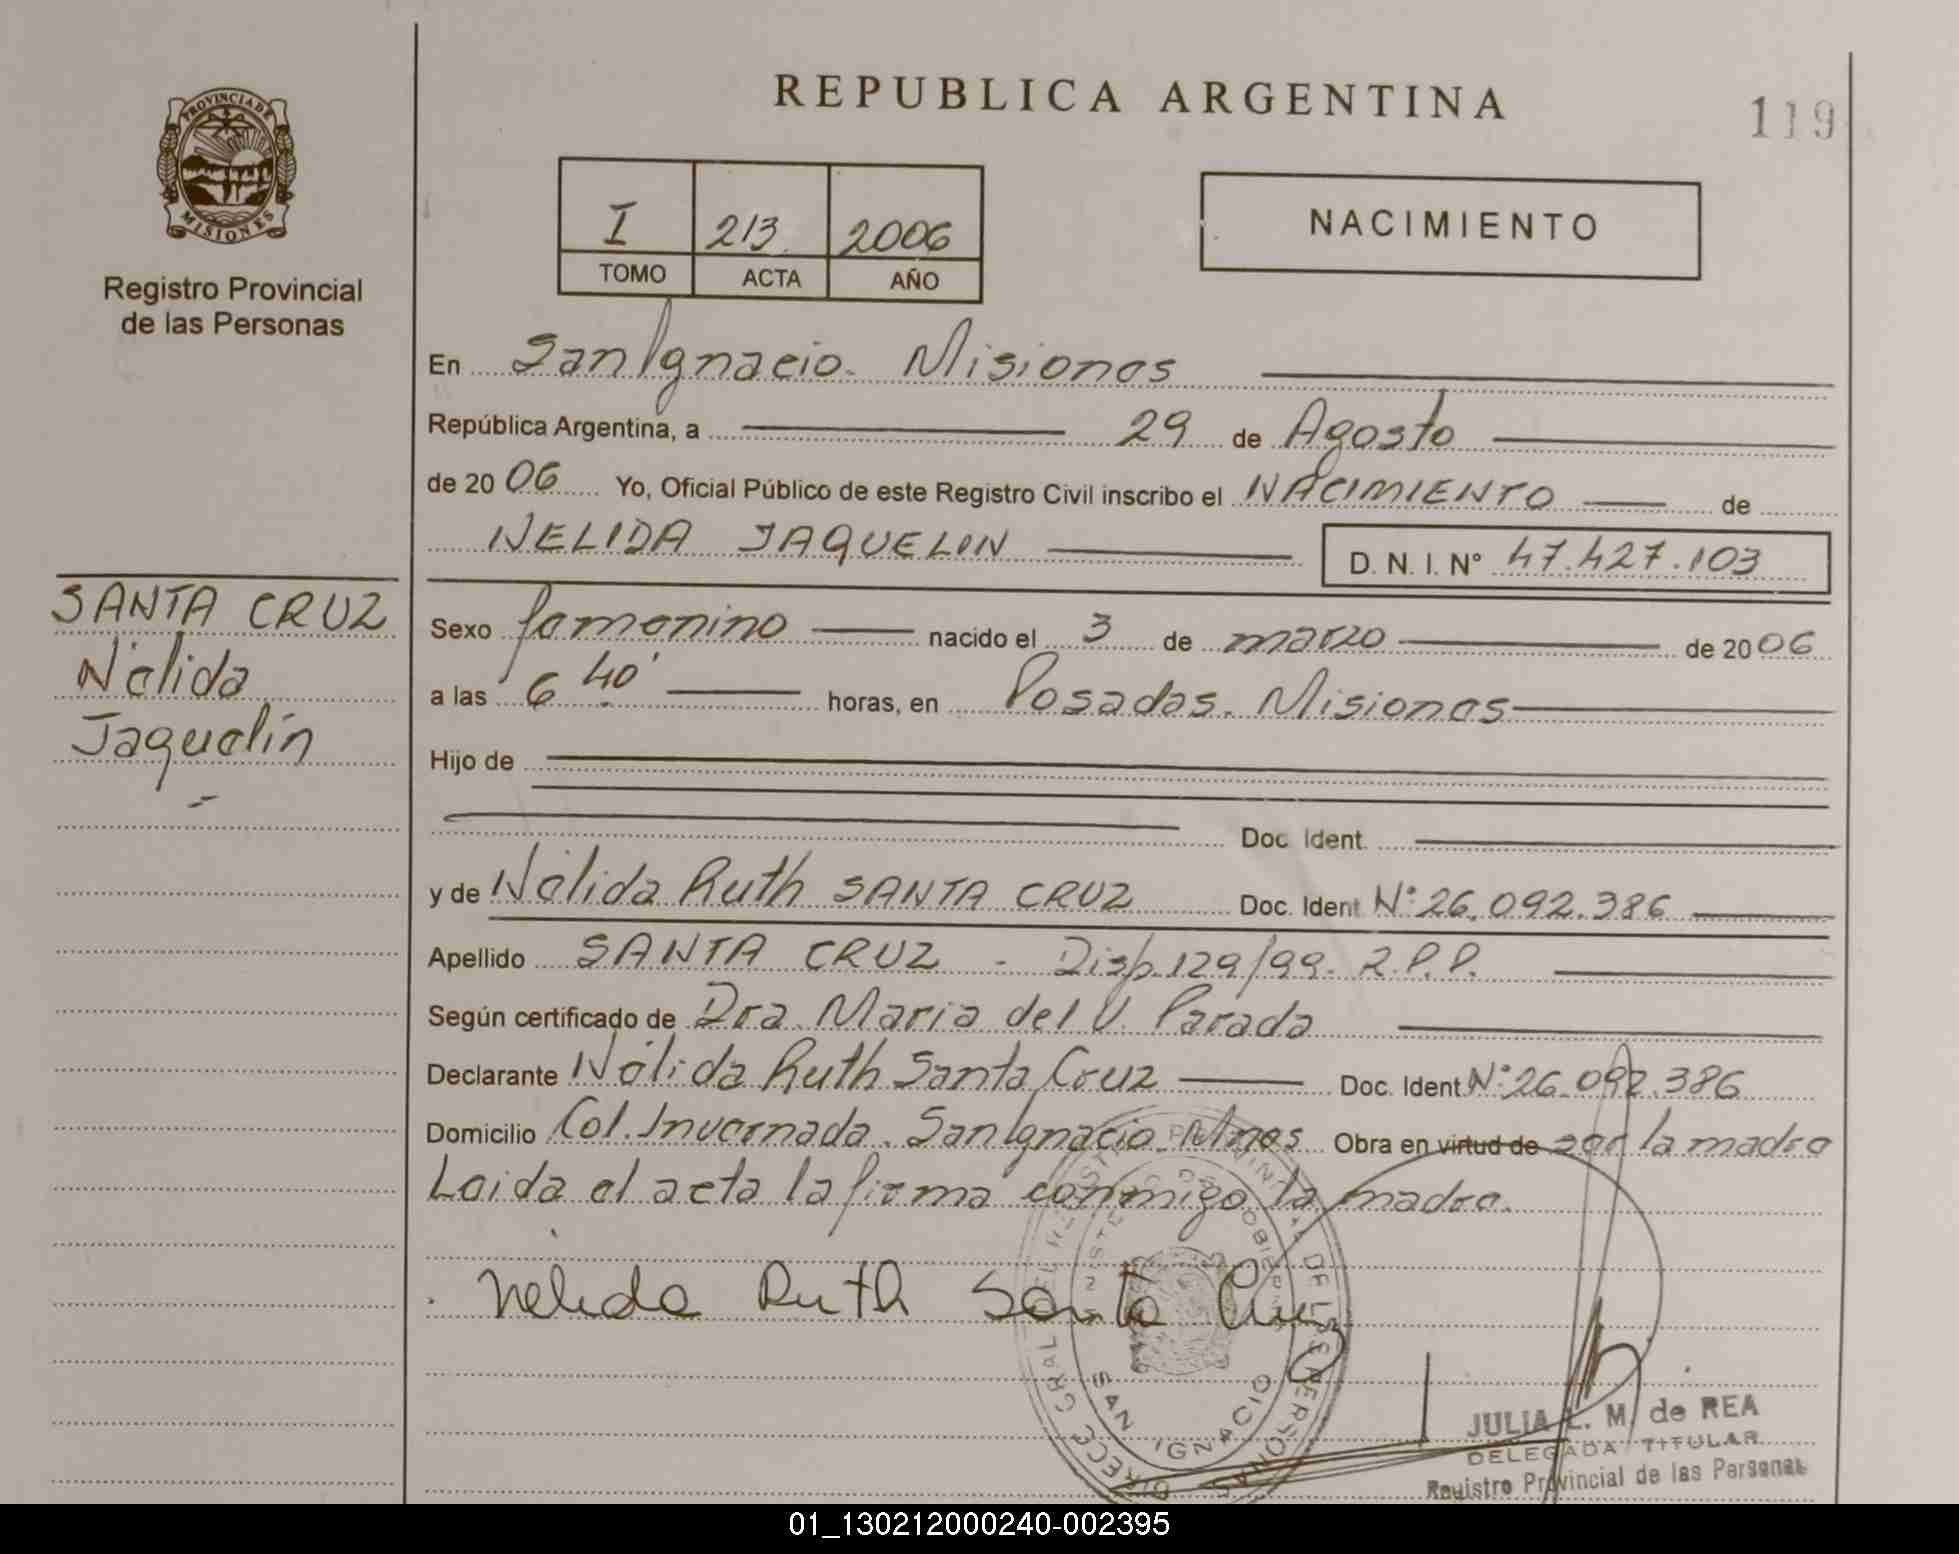 REPUBLICA ARGENTINA
119
PROVINCIA DE
MISIONES
Registro Provincial
de las Personas
I 213 2006
TOMO ACTA AÑO
NACIMIENTO
En San Ignacio. Misiones
República Argentina, a 29 de Agosto
de 20 06 Yo, Oficial Público de este Registro Civil inscribo el NACIMIENTO de
NELIDA JAQUELIN D. N. I. Nº 47.427.103
SANTA CRUZ
Nélida
Jaquelín
Sexo femenino nacido el 3 de marzo de 20 06
a las 6 40' horas, en Posadas. Misiones
Hijo de
Doc. Ident.
y de Nélida Ruth SANTA CRUZ Doc. Ident Nº 26.092.386
Apellido SANTA CRUZ - Disp. 129/99. R.P.P.
Según certificado de Dra. Maria del V. Parada
Declarante Nélida Ruth Santa Cruz Doc. Ident Nº 26.092.386
Domicilio Col. Invernada. San Ignacio. Mnes Obra en virtud de ser la madre
Leida el acta la firma conmigo la madre.
Nelida Ruth Santa Cruz
SAN IGNACIO
JULIA L. M. de REA
DELEGADA TITULAR
Registro Provincial de las Personas
01_130212000240-002395